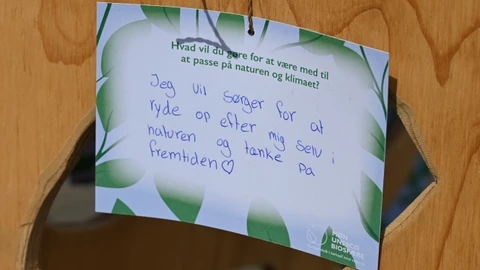 Hvad vil du gøre for at være med til
at passe på naturen og klimaet?
Jeg vil sørger for at
ryde op efter mig selv i
naturen og tænke på
fremtiden♡
UNESCO
BIOSFÆRE